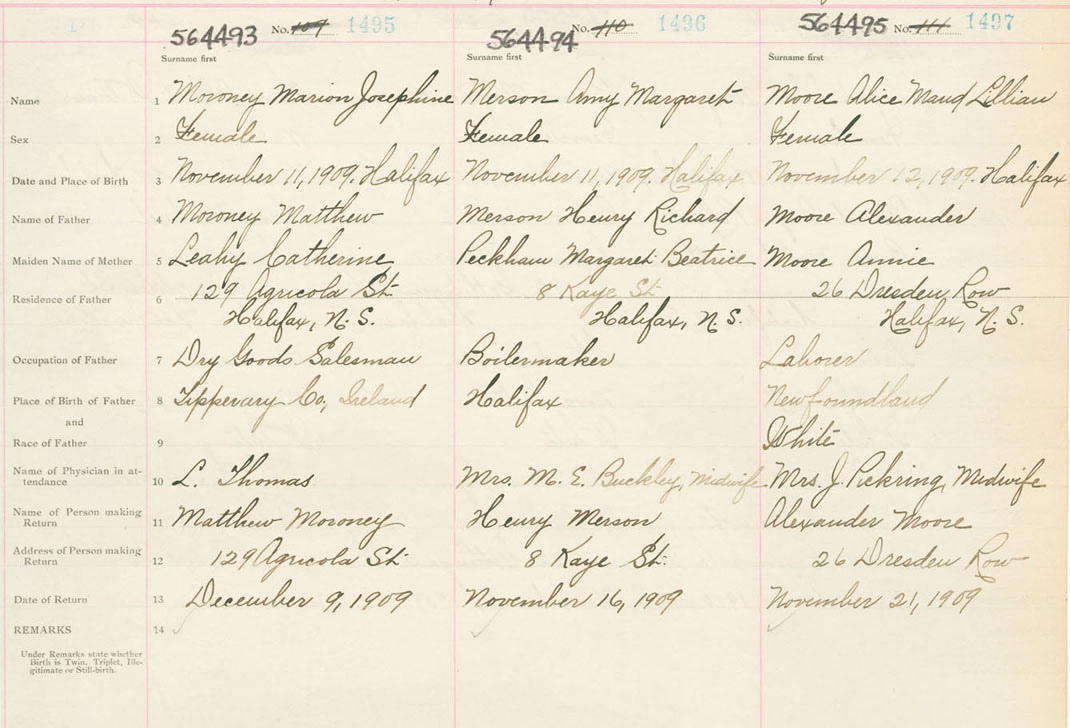 564493 No. 109 1495 564494 No. 110 1496 564495 No. 111 1497
Surname first Surname first Surname first
Name 1 Moroney Marion Josephine Merson Amy Margaret Moore Alice Maud Lillian
Sex 2 Female Female Female
Date and Place of Birth 3 November 11, 1909. Halifax November 11, 1909. Halifax November 12, 1909. Halifax
Name of Father 4 Moroney Matthew Merson Henry Richard Moore Alexander
Maiden Name of Mother 5 Leahy Catherine Peckham Margaret Beatrice Moore Annie
Residence of Father 6 129 Agricola St. 8 Kaye St. 26 Dresden Row
Halifax, N. S. Halifax, N. S. Halifax, N. S.
Occupation of Father 7 Dry Goods Salesman Boilermaker Laborer
Place of Birth of Father 8 Tipperary Co, Ireland Halifax Newfoundland
and
Race of Father 9 White
Name of Physician in at-
tendance 10 L. Thomas Mrs. M. E. Buckley, Midwife Mrs. J. Pickring, Midwife
Name of Person making
Return 11 Matthew Moroney Henry Merson Alexander Moore
Address of Person making
Return 12 129 Agricola St. 8 Kaye St. 26 Dresden Row
Date of Return 13 December 9, 1909 November 16, 1909 November 21, 1909
REMARKS 14
Under Remarks state whether
Birth is Twin, Triplet, Ille-
gitimate or Still-birth.